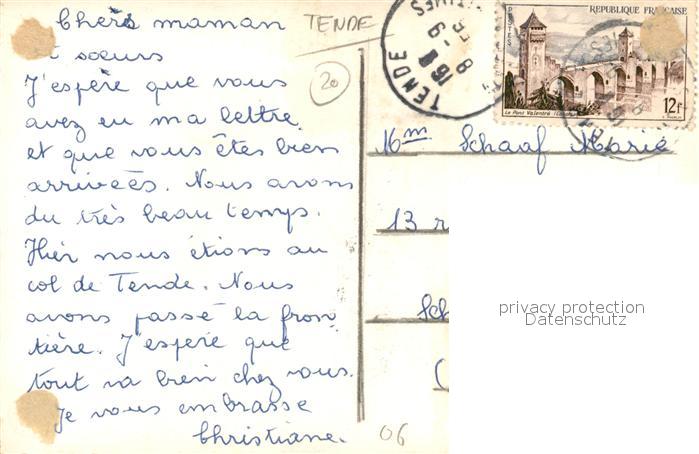 Chère maman
et sœurs
J'espère que vous
avez eu ma lettre
et que vous êtes bien
arrivées. Nous avons
du très beau temps.
Hier nous étions au
col de Tende. Nous
avons passé la fron
tière. J'espère que
tout va bien chez vous.
Je vous embrasse
Christiane.
TENDE
20
06
TENDE
16
8-9
REPUBLIQUE FRANÇAISE
POSTES
Le Pont Valentré
12f
Mm Schaaf Marie
13 r
Sch
(
privacy protection
Datenschutz